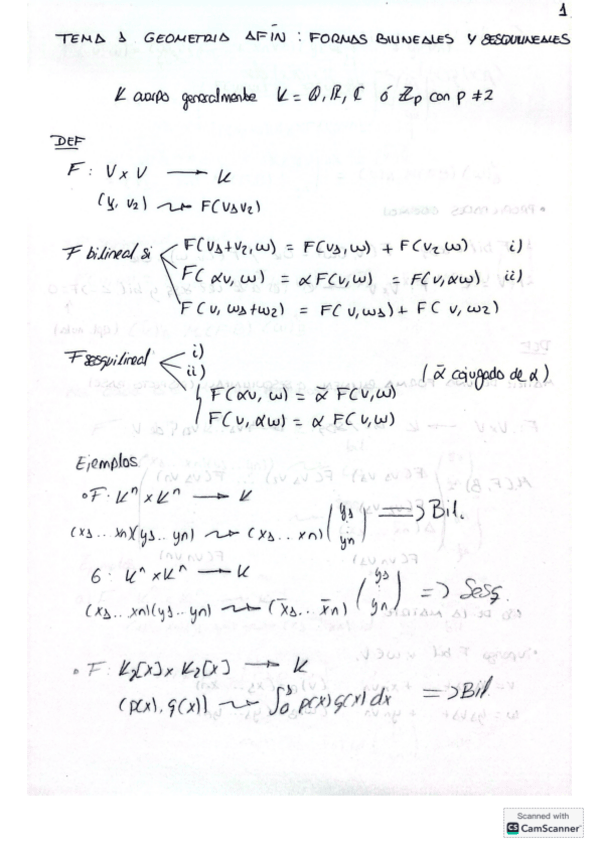 1
TEMA 1 GEOMETRIA AFÍN : FORMAS BILINEALES Y SESQUILINEALES
K cuerpo generalmente K = Q, R, C ó Zp con p ≠ 2
DEF
F : V x V → K
(v1, v2) ⇝ F(v1 v2)
F bilineal si F(v1+v2, ω) = F(v1, ω) + F(v2, ω) i)
F(αv, ω) = αF(v, ω) = F(v, αω) ii)
F(v, ω1+ω2) = F(v, ω1) + F(v, ω2)
F sesquilineal i)
ii) (ᾱ cojugado de α)
F(αv, ω) = ᾱ F(v, ω)
F(v, αω) = α F(v, ω)
Ejemplos
∘ F: Kⁿ x Kⁿ → K
(x1... xn)(y1... yn) ⇝ (x1... xn) (y1 ⋮ yn) ⇒ Bil.
G : Kⁿ x Kⁿ → K
(x1... xn)(y1... yn) ⇝ (x̄1... x̄n) (y1 ⋮ yn) ⇒ Sesq.
∘ F: K2[x] x K2[x] → K
(p(x), q(x)) ⇝ ∫₀¹ p(x)q(x) dx ⇒ Bil
Scanned with
CS CamScanner